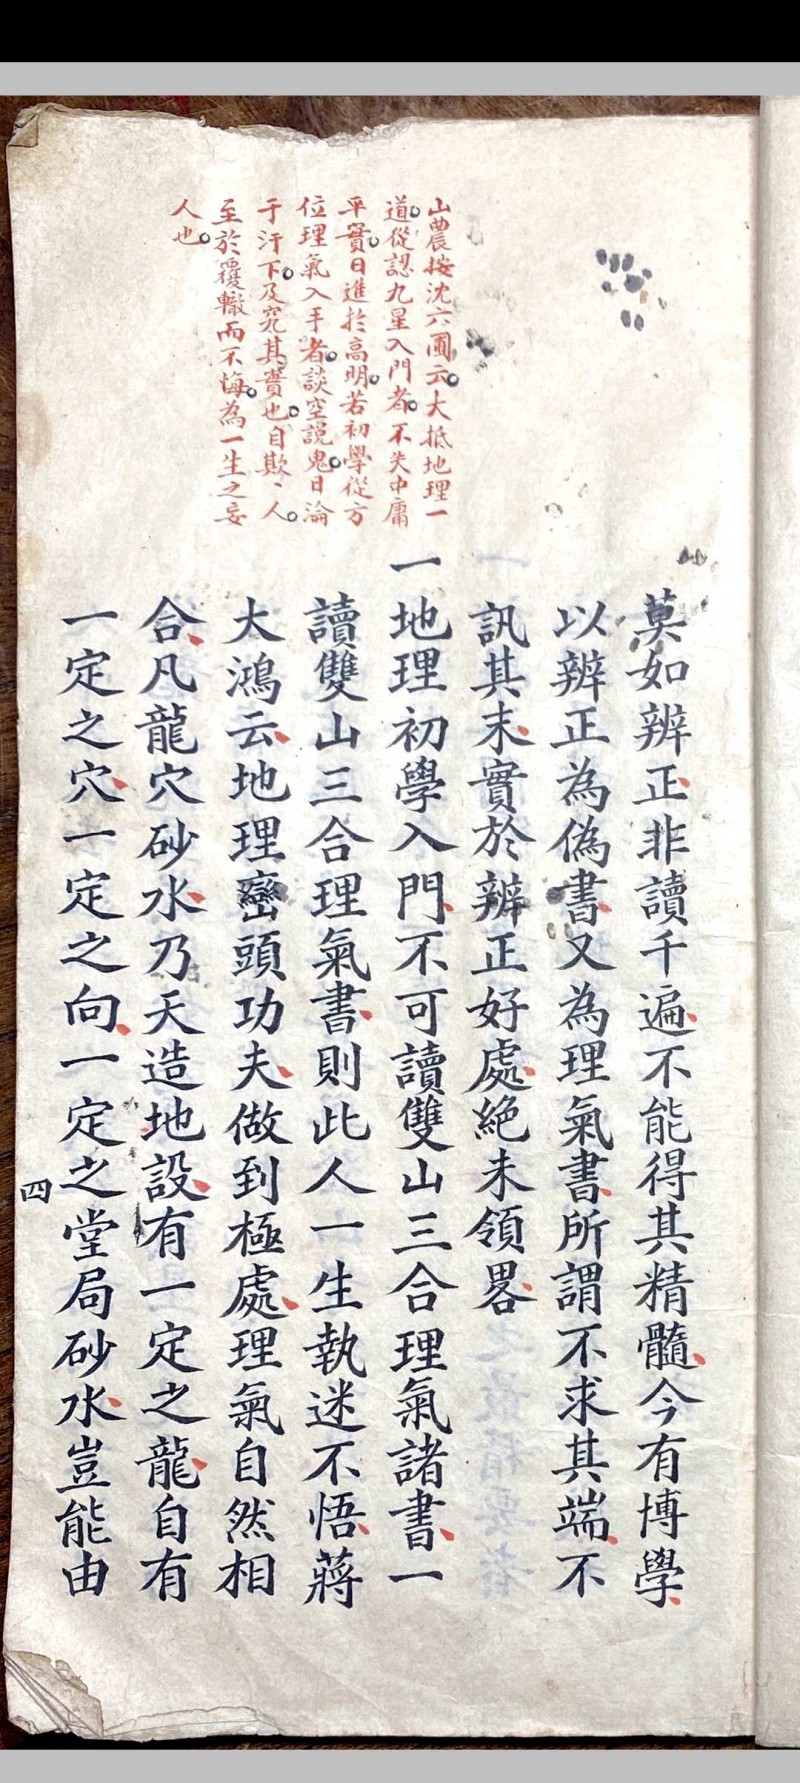 山農按沈六圃云大抵地理一
道從認九星入門者不失中庸
平實日進於高明若初學從方
位理氣入手者談空說鬼日淪
于汙下及究其實也自欺、人
至於覆轍而不悔為一生之妄
人也
莫如辨正非讀千遍不能得其精髓今有博學
以辨正為偽書又為理氣書所謂不求其端不
訊其末實於辨正好處絕未領畧
一地理初學入門不可讀雙山三合理氣諸書一
讀雙山三合理氣書則此人一生執迷不悟蔣
大鴻云地理巒頭功夫做到極處理氣自然相
合凡龍穴砂水乃天造地設有一定之龍自有
一定之穴一定之向一定之堂局砂水豈能由
四